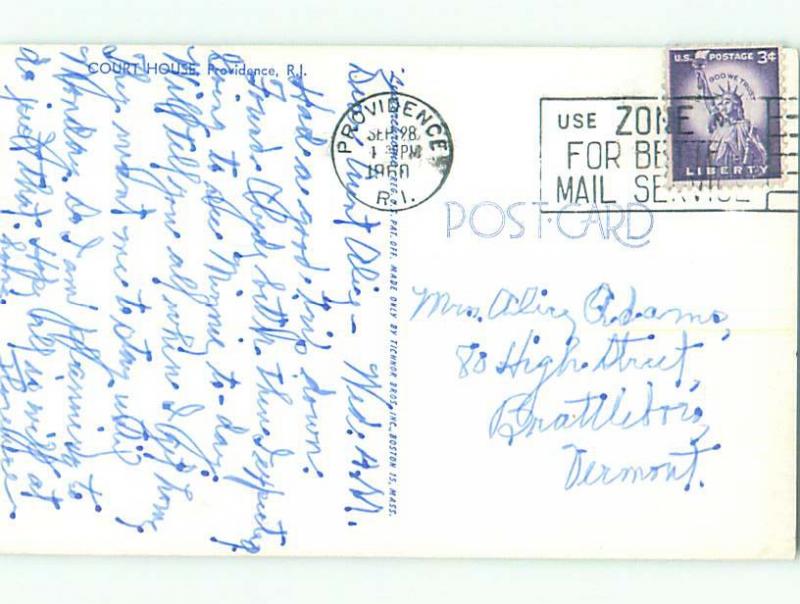 COURT HOUSE, Providence, R.I.
Dear Aunt Alice – Wed. A.M.
Had a good trip down.
Found
going to see Minnie to-day.
Will tell you all when I get home
They want me to stay until
Monday. So I am planning to
do just that. Hope all is well at
home.
Florence.
MADE ONLY BY TICHNOR BROS., INC., BOSTON 15, MASS.
PROVIDENCE
SEP 28
PM
1960
R.I.
USE ZONE
FOR
MAIL SERVICE
U.S. POSTAGE 3¢
IN GOD WE TRUST
LIBERTY
POST CARD
Mrs. Alice Adams,
80 High Street,
Brattleboro,
Vermont.